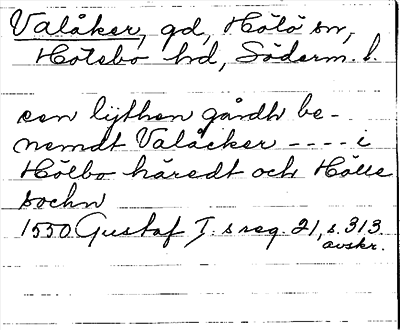 Valåker, gd, Hölö sn,
Hölebo hd, Söderm. l.
een lijthen gårdh be-
nemdt Valåcker ---- i
Hölbo häredt och Hölle
sochn
1550 Gustaf I:s reg. 21, s. 313.
avskr.